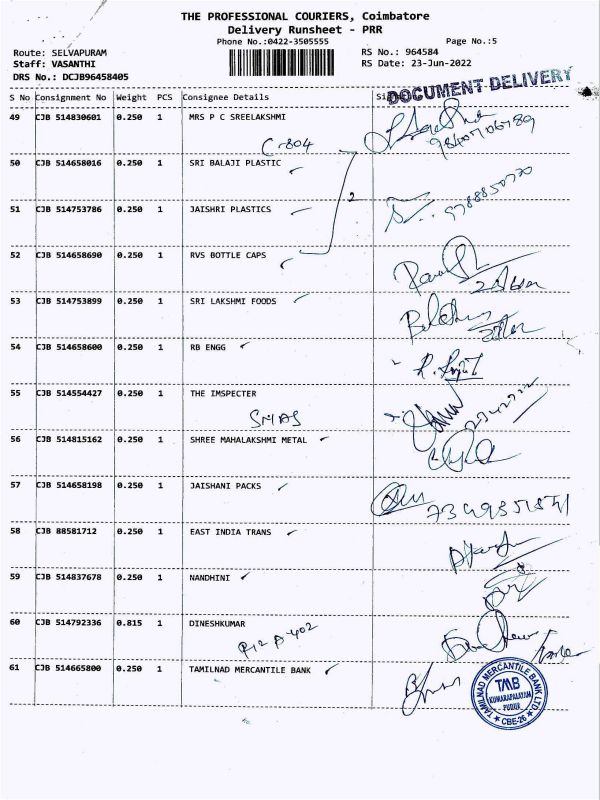 THE PROFESSIONAL COURIERS, Coimbatore
Delivery Runsheet - PRR
Phone No.:0422-3505555
Page No.:5
Route: SELVAPURAM
RS No.: 964584
Staff: VASANTHI
RS Date: 23-Jun-2022
DRS No.: DCJB96458405
DOCUMENT DELIVERY
S No Consignment No Weight PCS Consignee Details
49 CJB 514830601 0.250 1 MRS P C SREELAKSHMI
C-804
50 CJB 514658016 0.250 1 SRI BALAJI PLASTIC
2
51 CJB 514753786 0.250 1 JAISHRI PLASTICS
52 CJB 514658690 0.250 1 RVS BOTTLE CAPS
53 CJB 514753899 0.250 1 SRI LAKSHMI FOODS
54 CJB 514658600 0.250 1 RB ENGG
55 CJB 514554427 0.250 1 THE IMSPECTER
56 CJB 514815162 0.250 1 SHREE MAHALAKSHMI METAL
57 CJB 514658198 0.250 1 JAISHANI PACKS
58 CJB 88581712 0.250 1 EAST INDIA TRANS
59 CJB 514837678 0.250 1 NANDHINI
60 CJB 514792336 0.815 1 DINESHKUMAR
61 CJB 514665800 0.250 1 TAMILNAD MERCANTILE BANK
TAMILNAD MERCANTILE BANK LTD.
TMB
KUMARAPALAYAM
PUDUR
CBE-26